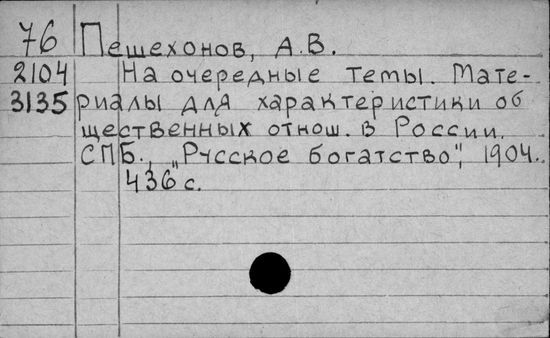 76 Пешехонов, А.В.
2104 На очередные темы. Мате-
3135 риалы для характеристики об
щественных отнош. в России.
СПБ., „Русское богатство", 1904.
436 с.